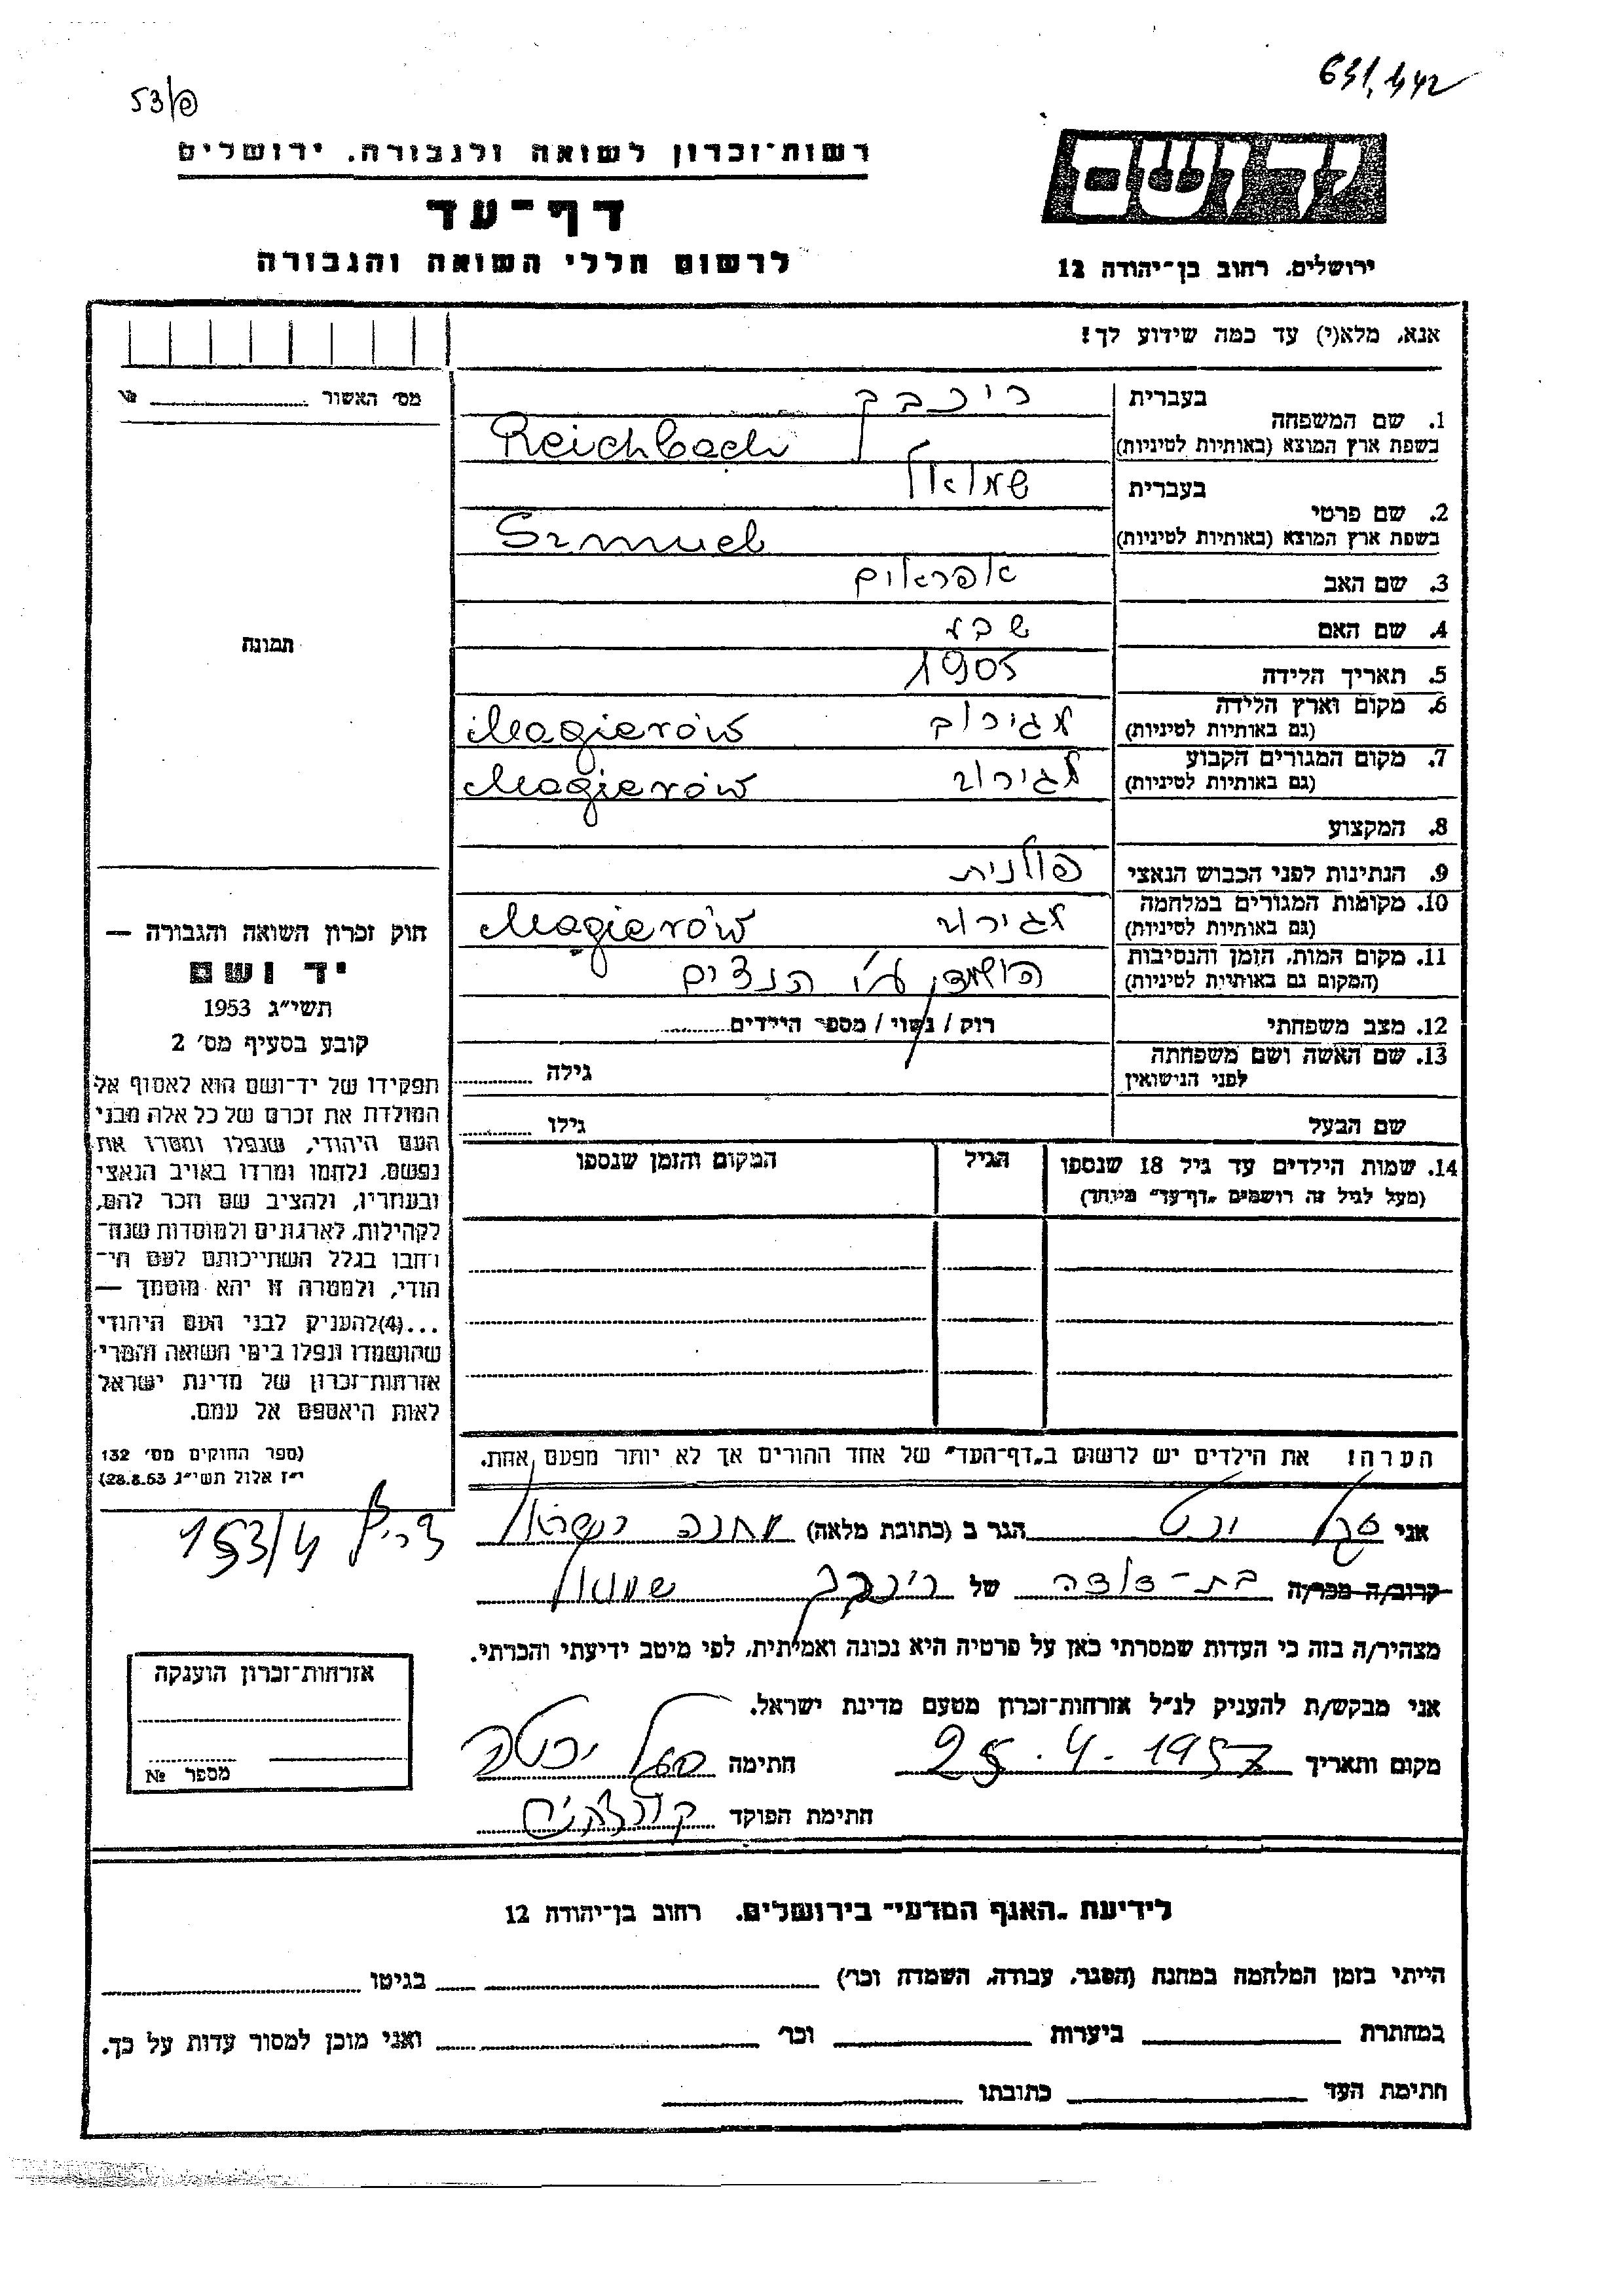 53/פ
631,442
יד ושם
ירושלים, רחוב בן־יהודה 12
רשות־זכרון לשואה ולגבורה, ירושלים
דף־עד
לרשום חללי השואה והגבורה
אנא, מלא(י) עד כמה שידוע לך!
מס' האשור №
1. שם המשפחה
בעברית רייכבך
בשפת ארץ המוצא (באותיות לטיניות) Reichbach
2. שם פרטי
בעברית שמואל
בשפת ארץ המוצא (באותיות לטיניות) Szmuel
3. שם האב אפראים
4. שם האם שבע
5. תאריך הלידה 1905
6. מקום וארץ הלידה
(גם באותיות לטיניות) מגירוב Magierów
7. מקום המגורים הקבוע
(גם באותיות לטיניות) מגירוב Magierów
8. המקצוע
9. הנתינות לפני הכבוש הנאצי פולנית
10. מקומות המגורים במלחמה
(גם באותיות לטיניות) מגירוב Magierów
11. מקום המות, הזמן והנסיבות
(המקום גם באותיות לטיניות) הושמד ע"י הנצים
12. מצב משפחתי רוק / נשוי / מספר הילדים
13. שם האשה ושם משפחתה
לפני הנישואין גילה
שם הבעל גילו
14. שמות הילדים עד גיל 18 שנספו הגיל המקום והזמן שנספו
(מעל לגיל זה רושמים „דף־עד" מיוחד)
הערה! את הילדים יש לרשום ב„דף־העד" של אחד ההורים אך לא יותר מפעם אחת.
תמונה
חוק זכרון השואה והגבורה —
יד ושם
תשי"ג 1953
קובע בסעיף מס' 2
תפקידו של יד־ושם הוא לאסוף אל
המולדת את זכרם של כל אלה מבני
העם היהודי, שנפלו ומסרו את
נפשם, נלחמו ומרדו באויב הנאצי
ובעוזריו, ולהציב שם וזכר להם,
לקהילות, לארגונים ולמוסדות שנח־
רבו בגלל השתייכותם לעם הי־
הודי, ולמטרה זו יהא מוסמך —
...(4)להעניק לבני העם היהודי
שהושמדו ונפלו בימי השואה והמרי
אזרחות־זכרון של מדינת ישראל
לאות היאספם אל עמם.
(ספר החוקים מס' 132
י"ז אלול תשי"ג 28.8.53)
צריף 153/4
אני יהט הגר ב (כתובת מלאה) מחנה ישראל
קרוב/ה מכר/ה בת-דודה של רייכבך שמואל
מצהיר/ה בזה כי העדות שמסרתי כאן על פרטיה היא נכונה ואמיתית, לפי מיטב ידיעתי והכרתי.
אני מבקש/ת להעניק לנ"ל אזרחות־זכרון מטעם מדינת ישראל.
מקום ותאריך 25.4.1957 חתימה
חתימת הפוקד
אזרחות־זכרון הוענקה
מספר №
לידיעת „האגף המדעי" בירושלים, רחוב בן־יהודה 12
הייתי בזמן המלחמה במחנה (הסגר, עבודה, השמדה וכו') בגיטו
במחתרת ביערות וכו' ואני מוכן למסור עדות על כך.
חתימת העד כתובתו